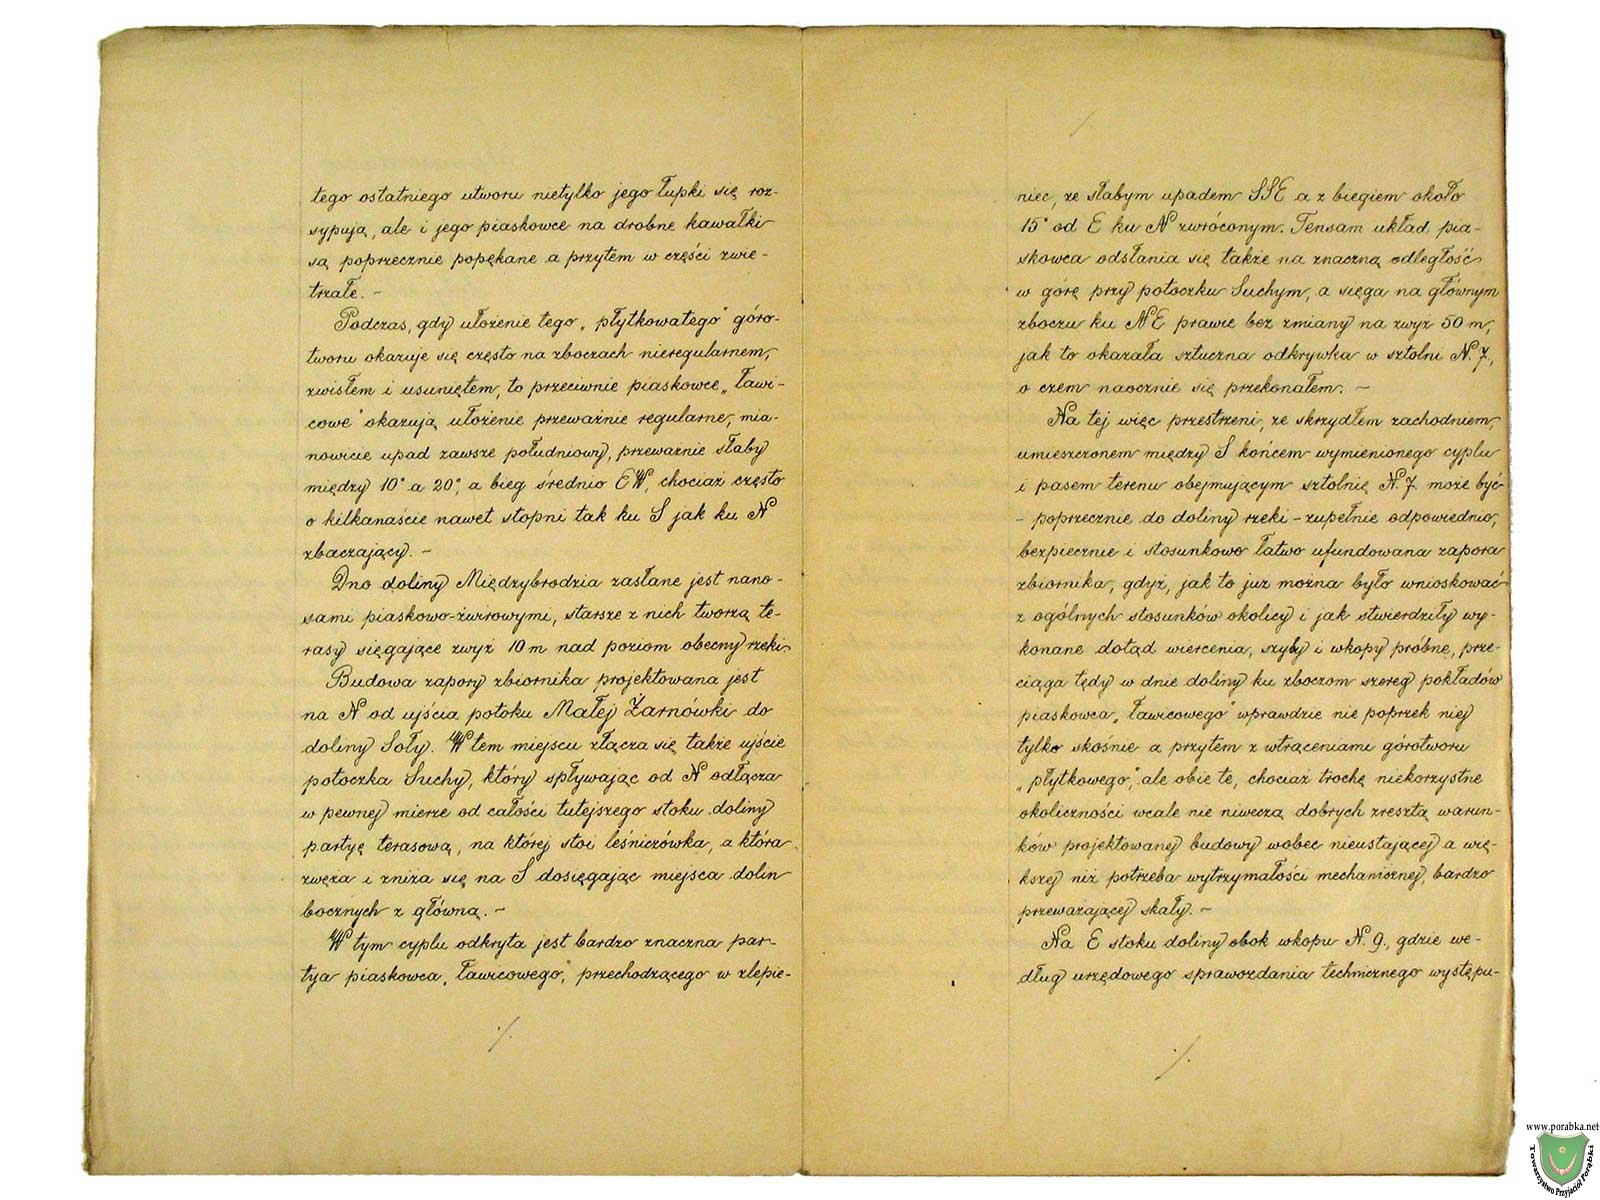 tego ostatniego utworu nietylko jego łupki się roz-
sypują, ale i jego piaskowce na drobne kawałki
są poprzecznie popękane a przytem w części zwie-
trzałe. –
Podczas, gdy ułożenie tego „płytkowatego" góro-
tworu okazuje się często na zboczach nieregularnem,
zwisłem i usuniętem, to przeciwnie piaskowce „ławi-
cowe" okazują ułożenie przeważnie regularne, mia-
nowicie upad zawsze południowy, przeważnie słaby
między 10° a 20°, a bieg średnio EW, chociaż często
o kilkanaście nawet stopni tak ku S jak ku N
zbaczający. –
Dno doliny Międzybrodzia zasłane jest nano-
sami piaskowo-żwirowymi, starsze z nich tworzą te-
rasy sięgające zwyż 10 m nad poziom obecny rzeki
Budowa zapory zbiornika projektowana jest
na N od ujścia potoku Małej Żarnówki do
doliny Soły. W tem miejscu złącza się także ujście
potoczka Suchy, który spływając od N odłącza
w pewnej mierze od całości tutejszego stoku doliny
partyę terasową, na której stoi leśniczówka, a która
zwęża i zniża się na S dosięgając miejsca dolin
bocznych z główną. –
W tym cyplu odkryta jest bardzo znaczna par-
tya piaskowca „ławicowego", przechodzącego w zlepie-
./.
niec, ze słabym upadem SSE a z biegiem około
15° od E ku N zwróconym. Tensam układ pia-
skowca odsłania się także na znaczną odległość
w górę przy potoczku Suchym, a sięga na głównym
zboczu ku NE prawie bez zmiany na zwyż 50 m,
jak to okazała sztuczna odkrywka w sztolni N. 7,
o czem naocznie się przekonałem. –
Na tej więc przestrzeni, ze skrzydłem zachodniem,
umieszczonem między S końcem wymienionego cyplu
i pasem terenu obejmującym sztolnię N. 7. może być
– poprzecznie do doliny rzeki – zupełnie odpowiednio,
bezpiecznie i stosunkowo łatwo ufundowana zapora
zbiornika, gdyż, jak to już można było wnioskować
z ogólnych stosunków okolicy i jak stwierdziły wy-
konane dotąd wiercenia, szyby i wkopy próbne, prze-
ciąga tędy w dnie doliny ku zboczom szereg pokładów
piaskowca „ławicowego" wprawdzie nie poprzek niej
tylko skośnie a przytem z wtrąceniami górotworu
„płytkowego", ale obie te, chociaż trochę niekorzystne
okoliczności wcale nie niweczą dobrych zresztą warun-
ków projektowanej budowy wobec nieustającej a wię-
kszej niż potrzeba wytrzymałości mechanicznej, bardzo
przeważającej skały. –
Na E stoku doliny obok wkopu N. 9., gdzie we-
dług urzędowego sprawozdania technicznego występu-
./.
www.porabka.net
Towarzystwo Przyjaciół Porąbki